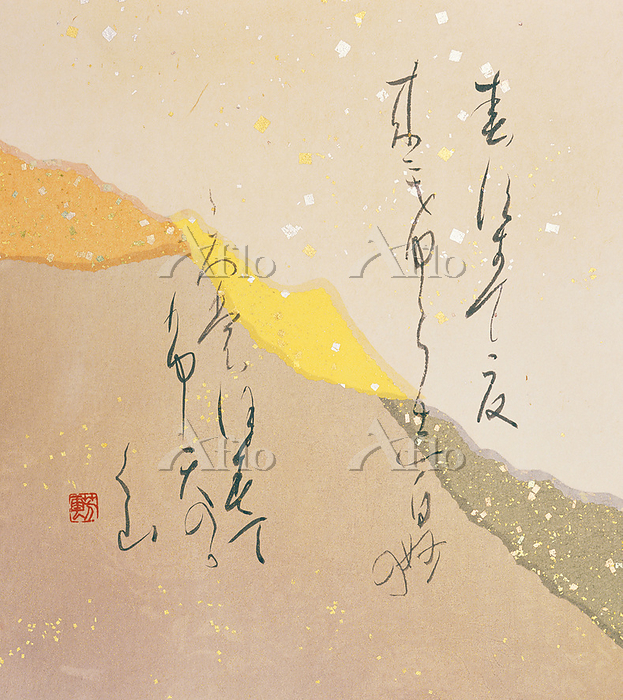 春すきて夏
来にけらし白妙の
ころもほすて
ふ天のか
く山
Aflo
Aflo
Aflo
Aflo